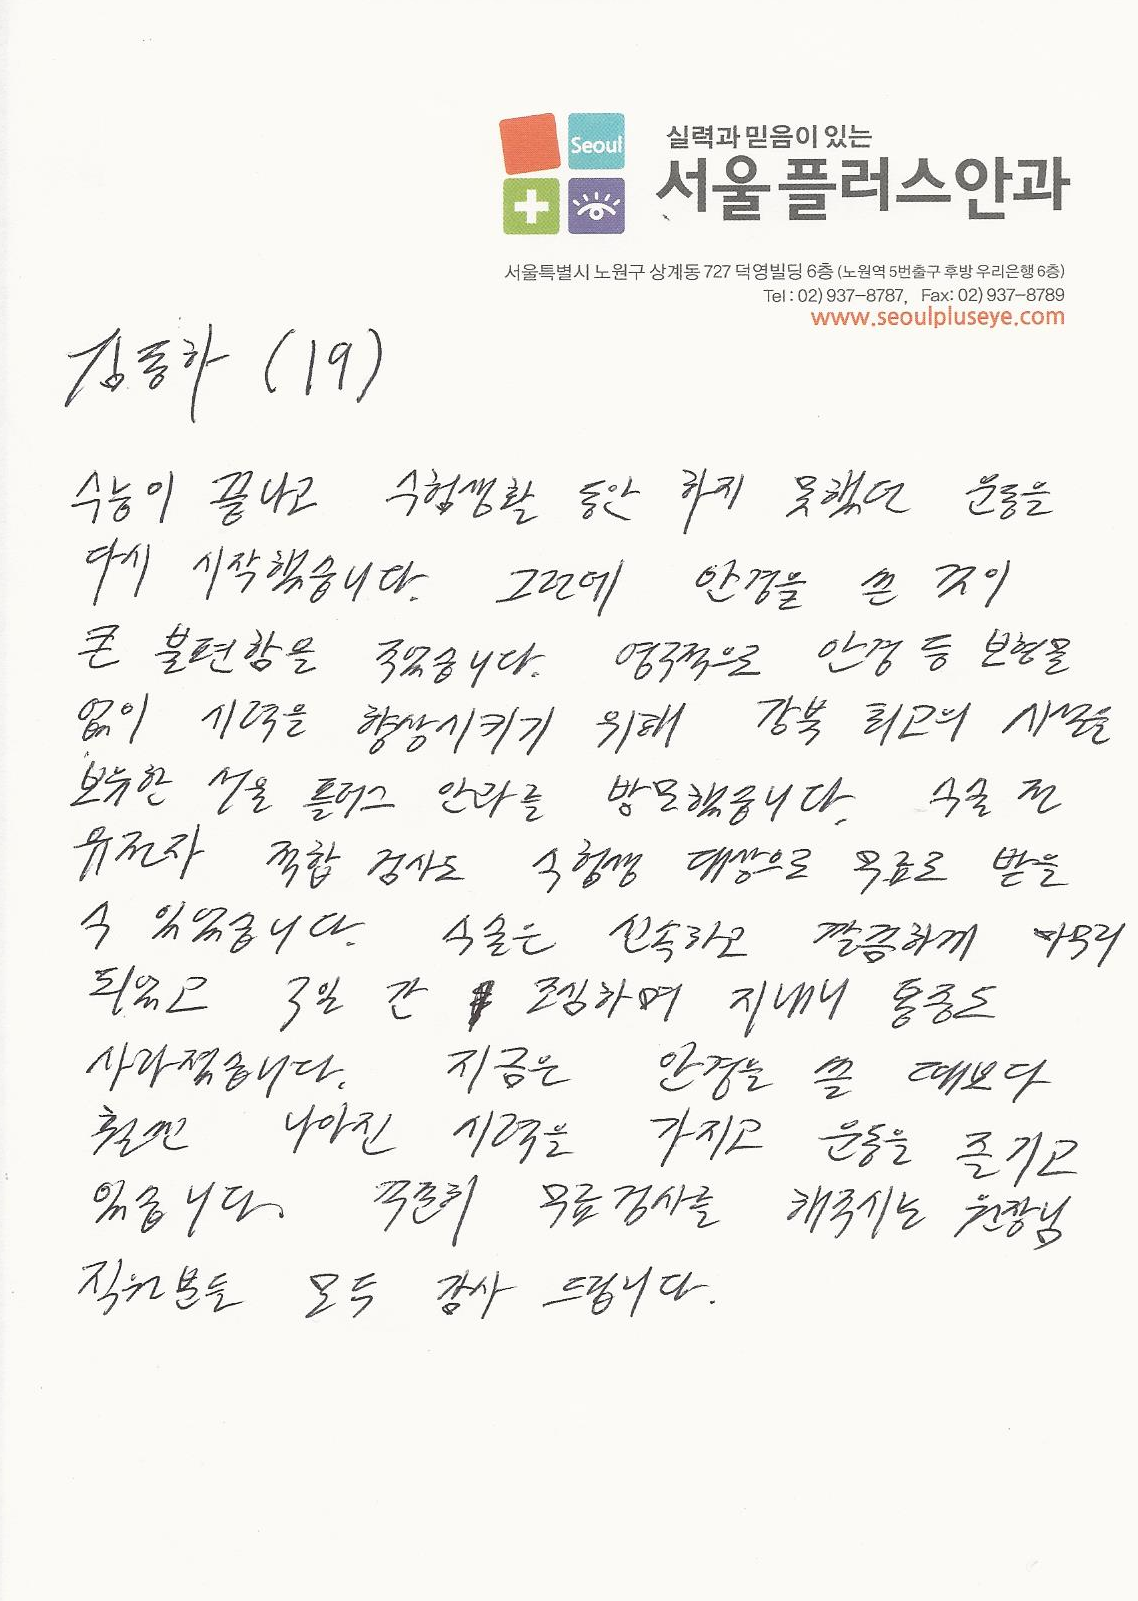 Seoul
실력과 믿음이 있는
서울플러스안과
서울특별시 노원구 상계동 727 덕영빌딩 6층 (노원역 5번출구 후방 우리은행 6층)
Tel : 02) 937-8787, Fax: 02) 937-8789
www.seoulpluseye.com
김동하 (19)
수능이 끝나고 수험생활 동안 하지 못했던 운동을
다시 시작했습니다. 그런데 안경을 쓴 것이
큰 불편함을 주었습니다. 영구적으로 안경 등 보형물
없이 시력을 향상시키기 위해 강북 최고의 시설을
보유한 서울 플러스 안과를 방문했습니다. 수술 전
유전자 적합 검사도 수험생 대상으로 무료로 받을
수 있었습니다. 수술은 신속하고 깔끔하게 마무리
되었고 3일 간 조심하며 지내니 통증도
사라졌습니다. 지금은 안경을 쓸 때보다
훨씬 나아진 시력을 가지고 운동을 즐기고
있습니다. 꾸준히 무료검사를 해주시는 원장님
직원분들 모두 감사 드립니다.